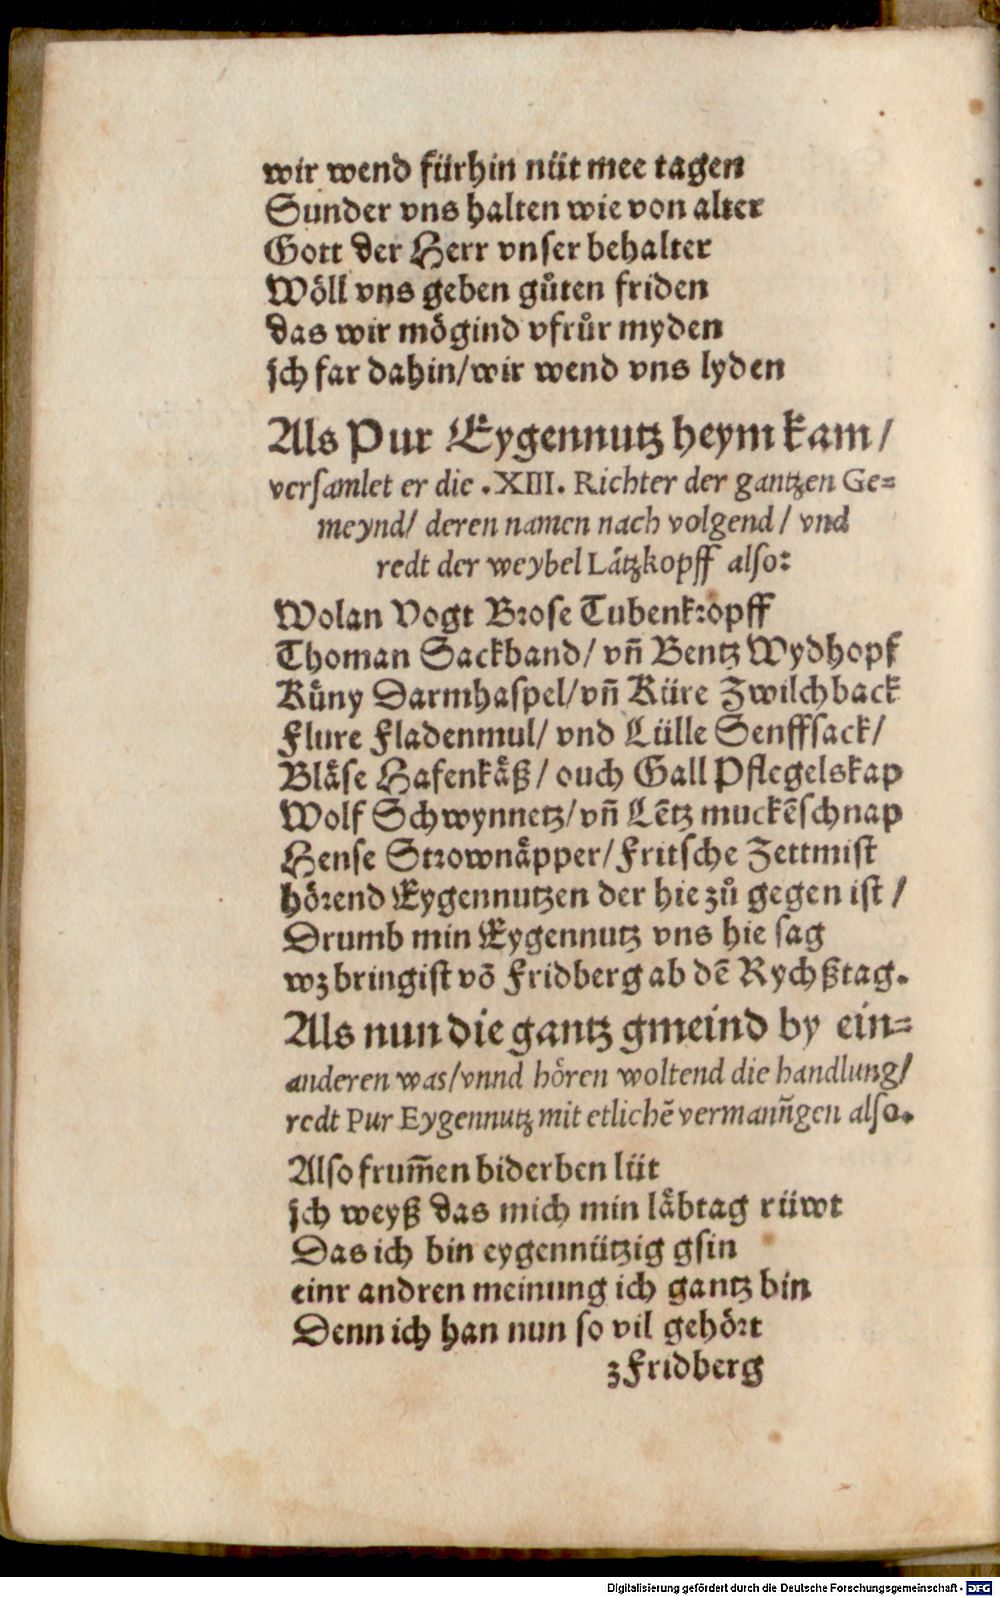 wir wend fürhin nüt mee tagen
Sunder vns halten wie von alter
Gott der Herr vnser behalter
Wöll vns geben gůten friden
das wir mögind vfrůr myden
ich far dahin/wir wend vns lyden
Als Pur Eygennutz heym kam/
versamlet er die .XIII. Richter der gantzen Ge=
meynd/ deren namen nach volgend/ vnd
redt der weybel Lätzkopff also:
Wolan Vogt Brose Tubenkropff
Thoman Sackband/ vñ Bentz Wydhopf
Kůny Darmhaspel/vñ Küre Zwilchback
Flure Fladenmul/ vnd Lülle Senffsack/
Bläse Hafenkäß/ ouch Gall Pflegelskap
Wolf Schwynnetz/vñ Lētz muckēschnap
Hense Strownäpper/Fritsche Zettmist
hörend Eygennutzen der hie zů gegen ist/
Drumb min Eygennutz vns hie sag
wz bringist vō Fridberg ab dē Rychßtag.
Als nun die gantz gmeind by ein=
anderen was/vnnd hören woltend die handlung/
redt Pur Eygennutz mit etlichē vermanñgen also.
Also frum̄en biderben lüt
ich weyß das mich min läbtag rüwt
Das ich bin eygennützig gsin
einr andren meinung ich gantz bin
Denn ich han nun so vil gehört
zFridberg
Digitalisierung gefördert durch die Deutsche Forschungsgemeinschaft - DFG